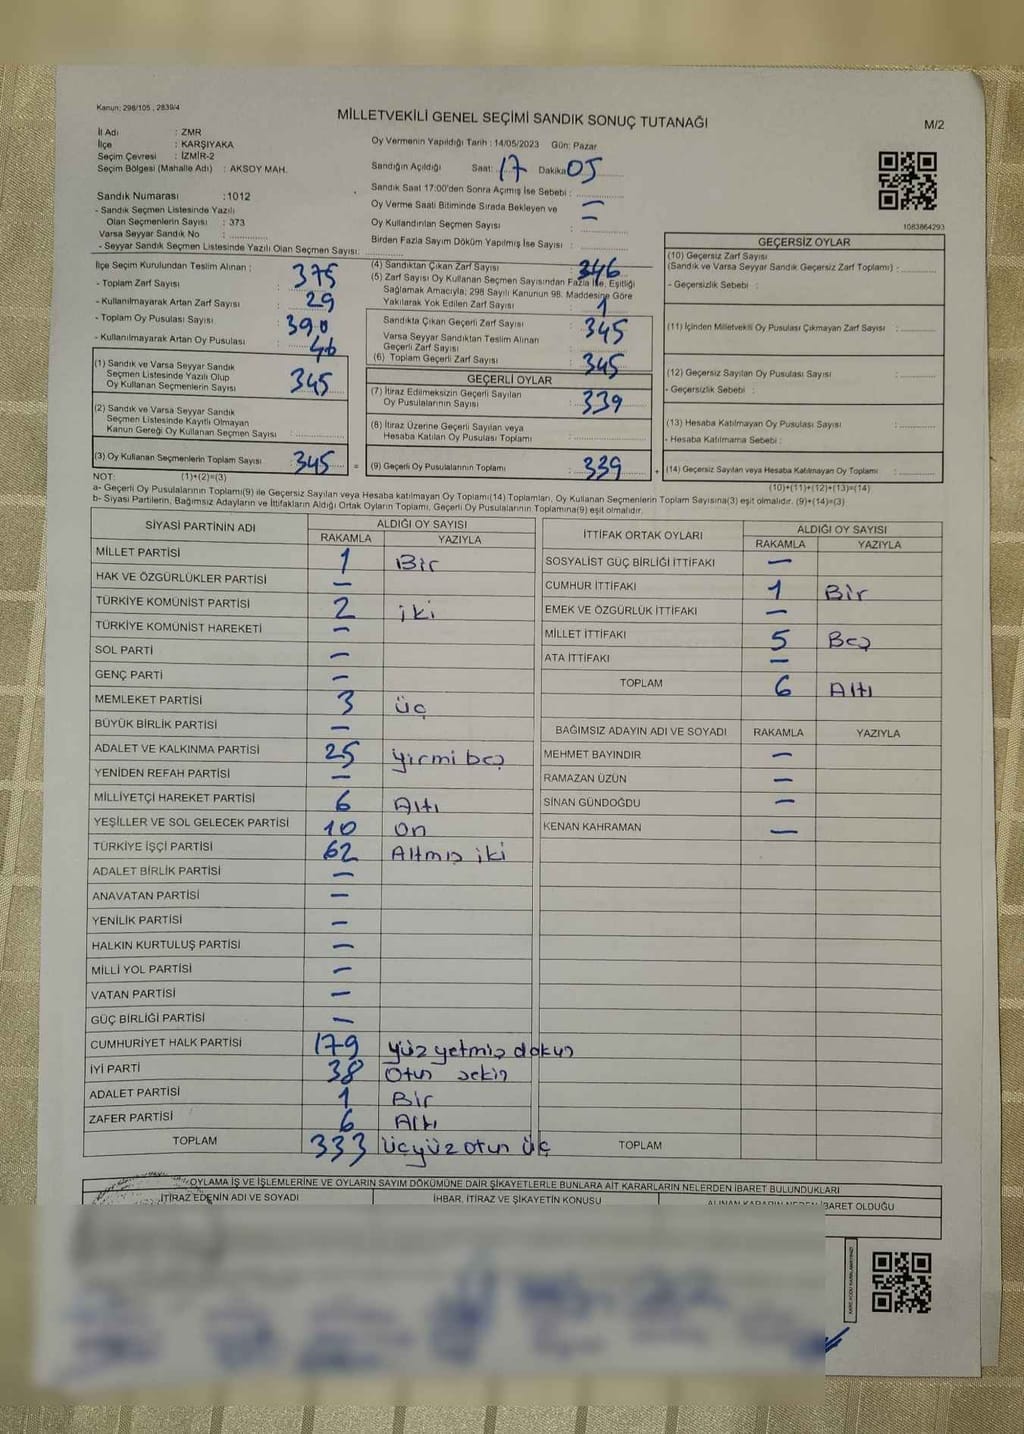 Kanun: 298/105 , 2839/4
MİLLETVEKİLİ GENEL SEÇİMİ SANDIK SONUÇ TUTANAĞI
M/2
İl Adı : ZMR
İlçe : KARŞIYAKA
Seçim Çevresi : İZMİR-2
Seçim Bölgesi (Mahalle Adı) : AKSOY MAH.
Oy Vermenin Yapıldığı Tarih : 14/05/2023 Gün: Pazar
Sandığın Açıldığı Saat: 17 Dakika 05
Sandık Saat 17:00'den Sonra Açımış İse Sebebi :
Oy Verme Saati Bitiminde Sırada Bekleyen ve —
Oy Kullandırılan Seçmen Sayısı : —
Birden Fazla Sayım Döküm Yapılmış İse Sayısı :
Sandık Numarası :1012
- Sandık Seçmen Listesinde Yazılı
Olan Seçmenlerin Sayısı : 373
Varsa Seyyar Sandık No :
- Seyyar Sandık Seçmen Listesinde Yazılı Olan Seçmen Sayısı:
1083864293
İlçe Seçim Kurulundan Teslim Alınan :
- Toplam Zarf Sayısı : 375
- Kullanılmayarak Artan Zarf Sayısı : 29
- Toplam Oy Pusulası Sayısı : 390
- Kullanılmayarak Artan Oy Pusulası : 46
(1) Sandık ve Varsa Seyyar Sandık
Seçmen Listesinde Yazılı Olup
Oy Kullanan Seçmenlerin Sayısı : 345
(2) Sandık ve Varsa Seyyar Sandık
Seçmen Listesinde Kayıtlı Olmayan
Kanun Gereği Oy Kullanan Seçmen Sayısı :
(3) Oy Kullanan Seçmenlerin Toplam Sayısı : 345 =
(4) Sandıktan Çıkan Zarf Sayısı : 346
(5) Zarf Sayısı Oy Kullanan Seçmen Sayısından Fazla İse, Eşitliği
Sağlamak Amacıyla; 298 Sayılı Kanunun 98. Maddesine Göre
Yakılarak Yok Edilen Zarf Sayısı : 1
Sandıkta Çıkan Geçerli Zarf Sayısı : 345
Varsa Seyyar Sandıktan Teslim Alınan
Geçerli Zarf Sayısı :
(6) Toplam Geçerli Zarf Sayısı : 345
GEÇERLİ OYLAR
(7) İtiraz Edilmeksizin Geçerli Sayılan
Oy Pusulalarının Sayısı : 339
(8) İtiraz Üzerine Geçerli Sayılan veya
Hesaba Katılan Oy Pusulası Toplamı :
(9) Geçerli Oy Pusulalarının Toplamı : 339 +
GEÇERSİZ OYLAR
(10) Geçersiz Zarf Sayısı
(Sandık ve Varsa Seyyar Sandık Geçersiz Zarf Toplamı) :
- Geçersizlik Sebebi :
(11) İçinden Milletvekili Oy Pusulası Çıkmayan Zarf Sayısı :
(12) Geçersiz Sayılan Oy Pusulası Sayısı :
- Geçersizlik Sebebi :
(13) Hesaba Katılmayan Oy Pusulası Sayısı :
- Hesaba Katılmama Sebebi :
(14) Geçersiz Sayılan veya Hesaba Katılmayan Oy Toplamı :
NOT: (1)+(2)=(3)
(10)+(11)+(12)+(13)=(14)
a- Geçerli Oy Pusulalarının Toplamı(9) ile Geçersiz Sayılan veya Hesaba katılmayan Oy Toplamı(14) Toplamları, Oy Kullanan Seçmenlerin Toplam Sayısına(3) eşit olmalıdır. (9)+(14)=(3)
b- Siyasi Partilerin, Bağımsız Adayların ve İttifakların Aldığı Ortak Oyların Toplamı, Geçerli Oy Pusulalarının Toplamına(9) eşit olmalıdır.
SİYASİ PARTİNİN ADI ALDIĞI OY SAYISI
RAKAMLA YAZIYLA
MİLLET PARTİSİ 1 Bir
HAK VE ÖZGÜRLÜKLER PARTİSİ —
TÜRKİYE KOMÜNİST PARTİSİ 2 iki
TÜRKİYE KOMÜNİST HAREKETİ —
SOL PARTİ —
GENÇ PARTİ —
MEMLEKET PARTİSİ 3 üç
BÜYÜK BİRLİK PARTİSİ —
ADALET VE KALKINMA PARTİSİ 25 yirmi beş
YENİDEN REFAH PARTİSİ —
MİLLİYETÇİ HAREKET PARTİSİ 6 Altı
YEŞİLLER VE SOL GELECEK PARTİSİ 10 on
TÜRKİYE İŞÇİ PARTİSİ 62 Altmış iki
ADALET BİRLİK PARTİSİ —
ANAVATAN PARTİSİ —
YENİLİK PARTİSİ —
HALKIN KURTULUŞ PARTİSİ —
MİLLİ YOL PARTİSİ —
VATAN PARTİSİ —
GÜÇ BİRLİĞİ PARTİSİ —
CUMHURİYET HALK PARTİSİ 179 yüz yetmiş dokuz
İYİ PARTİ 38 Otuz sekiz
ADALET PARTİSİ 1 Bir
ZAFER PARTİSİ 6 Altı
TOPLAM 333 üçyüz otuz üç
İTTİFAK ORTAK OYLARI ALDIĞI OY SAYISI
RAKAMLA YAZIYLA
SOSYALİST GÜÇ BİRLİĞİ İTTİFAKI —
CUMHUR İTTİFAKI 1 Bir
EMEK VE ÖZGÜRLÜK İTTİFAKI —
MİLLET İTTİFAKI 5 Beş
ATA İTTİFAKI —
TOPLAM 6 Altı
BAĞIMSIZ ADAYIN ADI VE SOYADI RAKAMLA YAZIYLA
MEHMET BAYINDIR —
RAMAZAN ÜZÜN —
SİNAN GÜNDOĞDU —
KENAN KAHRAMAN —
TOPLAM
OYLAMA İŞ VE İŞLEMLERİNE VE OYLARIN SAYIM DÖKÜMÜNE DAİR ŞİKAYETLERLE BUNLARA AİT KARARLARIN NELERDEN İBARET BULUNDUKLARI
İTİRAZ EDENİN ADI VE SOYADI İHBAR, İTİRAZ VE ŞİKAYETİN KONUSU ALINAN KARARIN NEDEN İBARET OLDUĞU